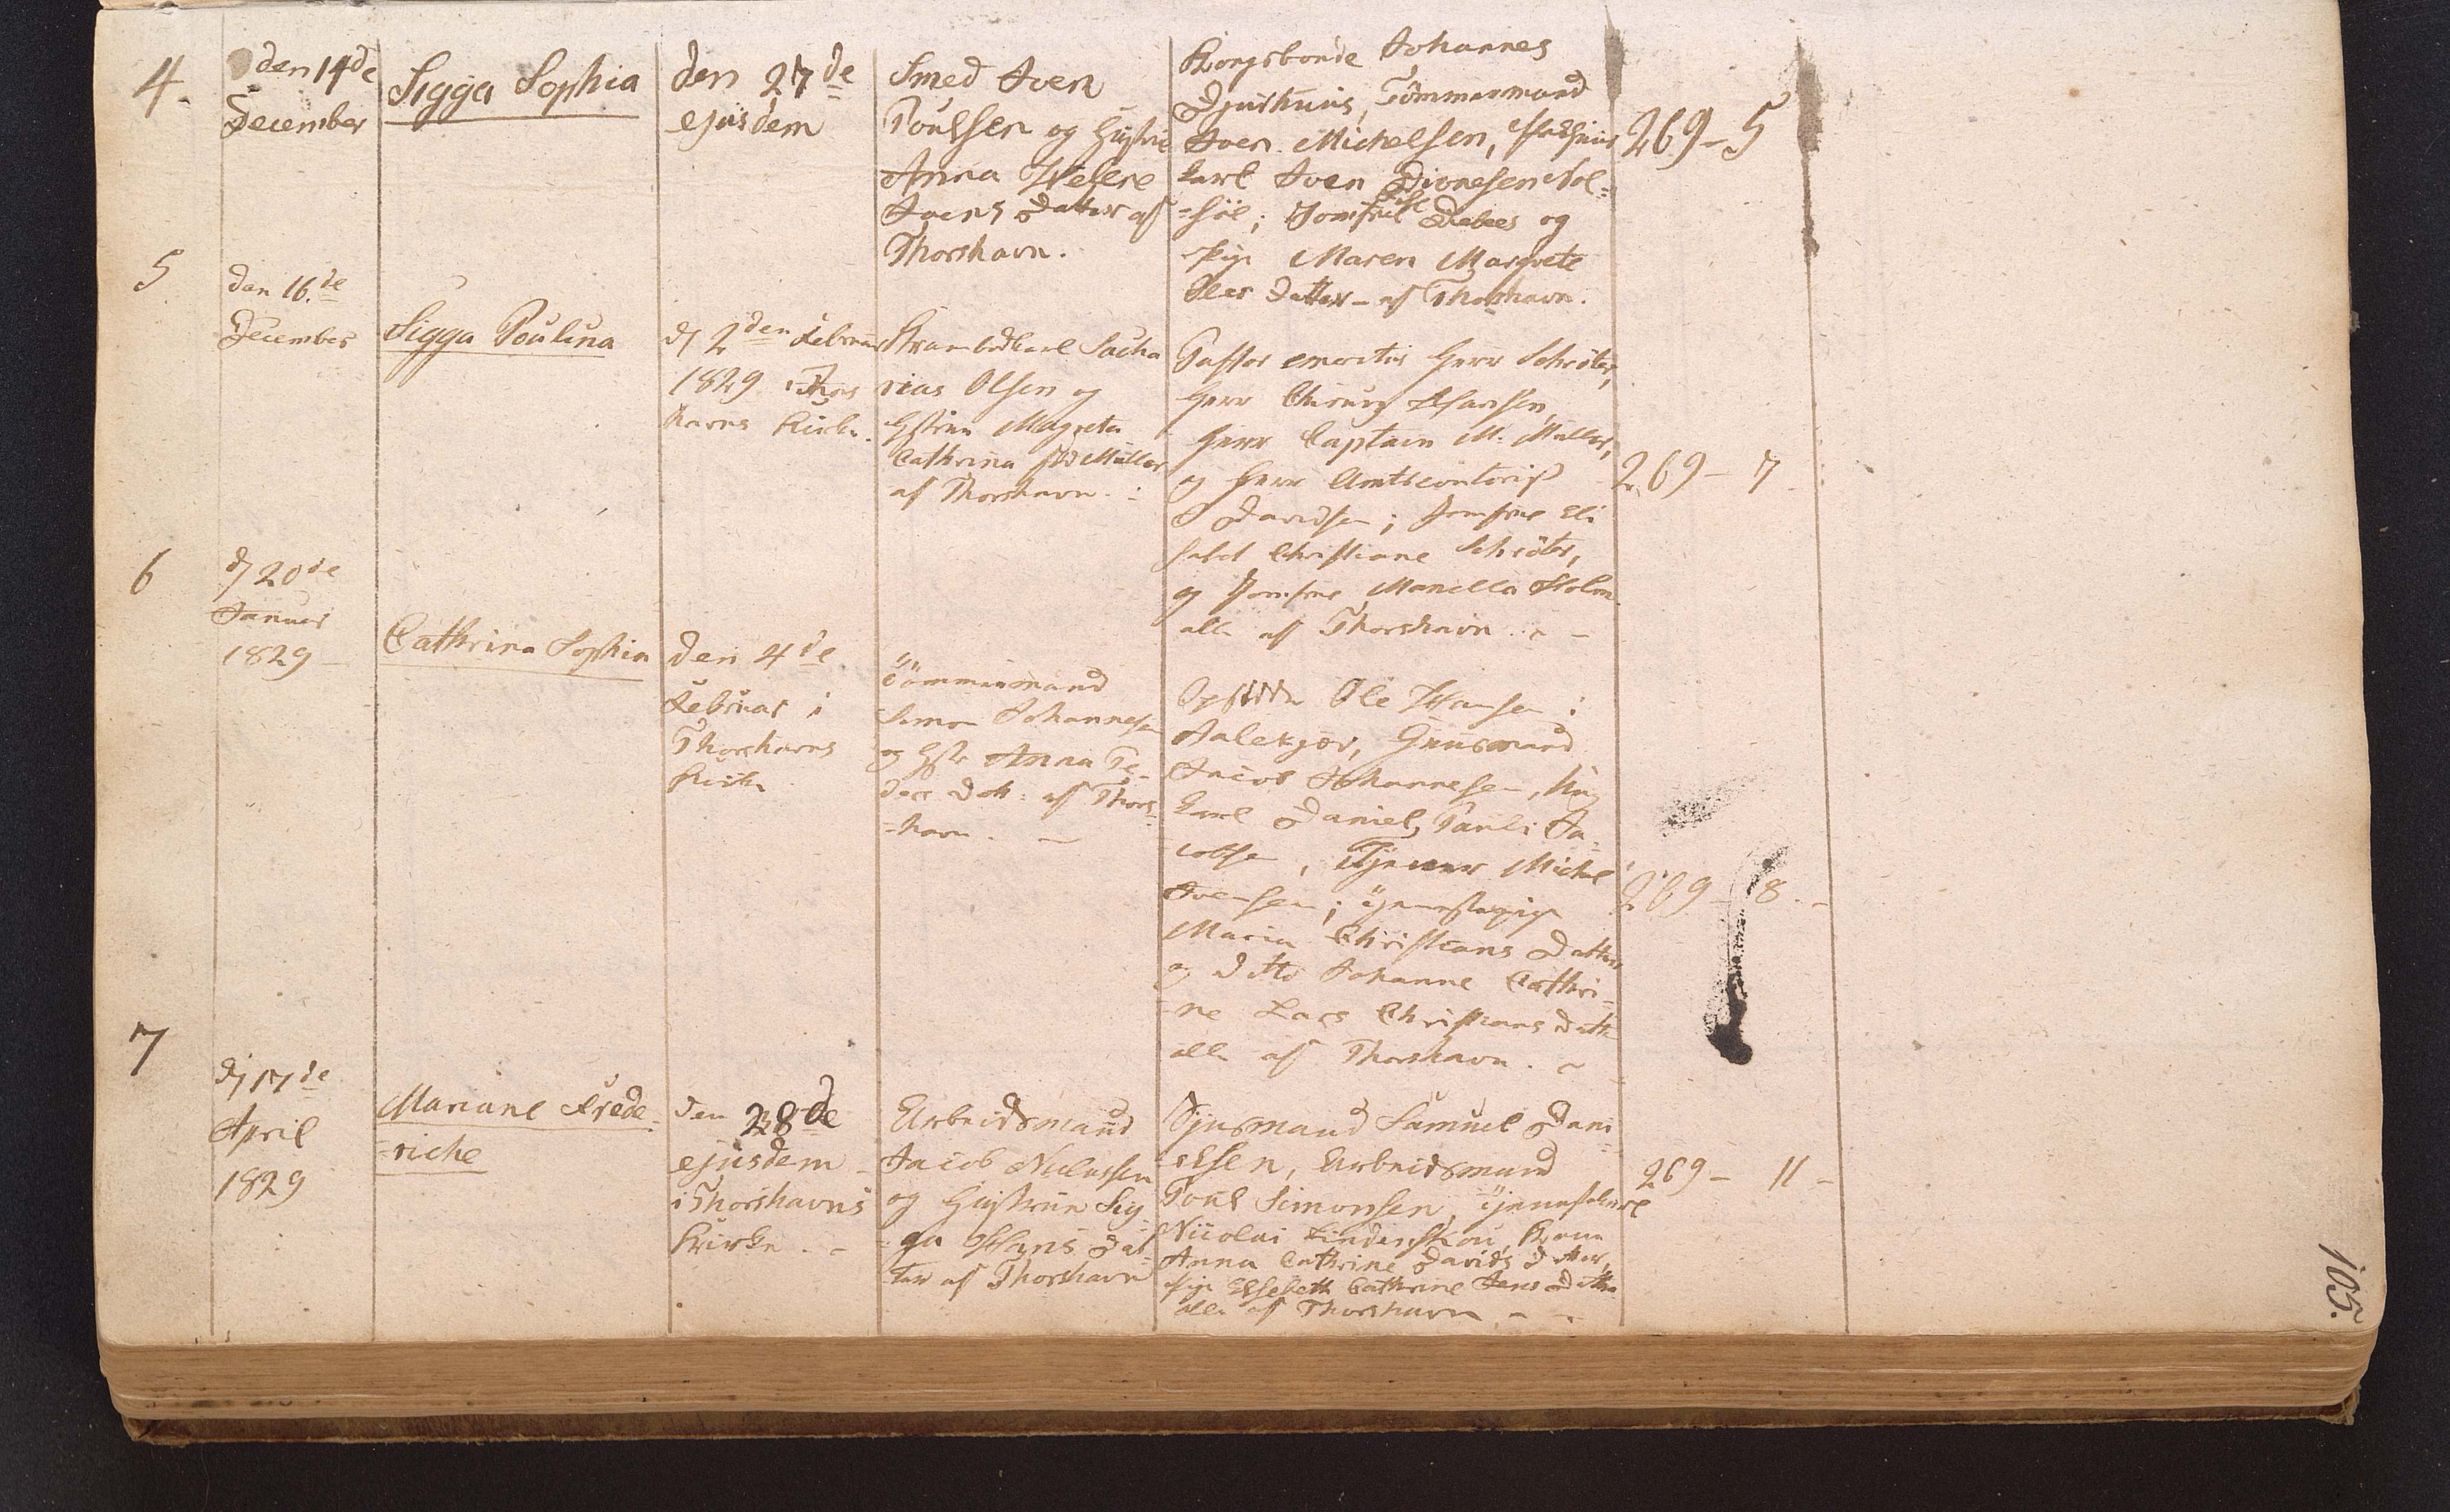 4.
den 14de
December
Sigga Sophia
den 27de
ejusdem
Smed Joen
Poulsen og Hustrue
Anna
Joens Datter af
Thorshavn.
Kongsbonde Johannes
Djurhuus, Tömmermand
Joen Michelsen,
karl Joen Nol=
=söe; Jomfrue Debes og
Pige Maren Margrete
Oles Datter - af Thorshavn.
269-5
5
den 16.de
December
Sigga Poulina
d 2den Februar
1829 i Thors
havns Kirke.
Krambodkarl Sacha
rias Olsen og
Hstrue Magreta
Cathrina fød Müller
af Thorshavn.
Pastor emeritus Herr Schröter,
Herr Chirurg Hansen,
Herr Captain M. Müller,
og Herr Amtscontorist
Davidsen; Jomfrue Eli
sabet Christiane Schröter,
og Jomfrue Manella Holm
alle af Thorshavn. - -
269- 7
6
d 20de
Januar
1829 -
Cathrina Sophia
den 4de
Februar i
Thorshavns
Kirke
Tömmermand
Simon Johannesen
og Hstr Anna Pe-
ders Datt: af Thors-
=havn. -
Ole Hansen i
Aalekjær, Huusmand
Jacob Johannesen, Ung
karl Daniel Pauli Ja
cobsen, Tjener Michel
Joensen; Tjenestepige
Maria Christians Datter
og Ditto Johanne Cathri-
-ne Lars Christians Datt
alle af Thorshavn. -
269- 8. -
7
d 17de
April
1829
Mariane Frede-
=riche
den 28de
ejusdem
i Thorshavns
Kirke. -
Arbeidsmand
Jacob Niclassen
og Hustrue Sig
=ga Hans Dat-
ter af Thorshavn
Huusmand Samuel Dani
elsen, Arbeidsmand
Poul Simonsen, Tjenestekarl
Nicolai Lindenskou, Kone
Anna Cathrine Davids Datter,
Pige Elsebeth Cathrine Jens Datter
alle af Thorshavn - -
269 - 11 -
105.